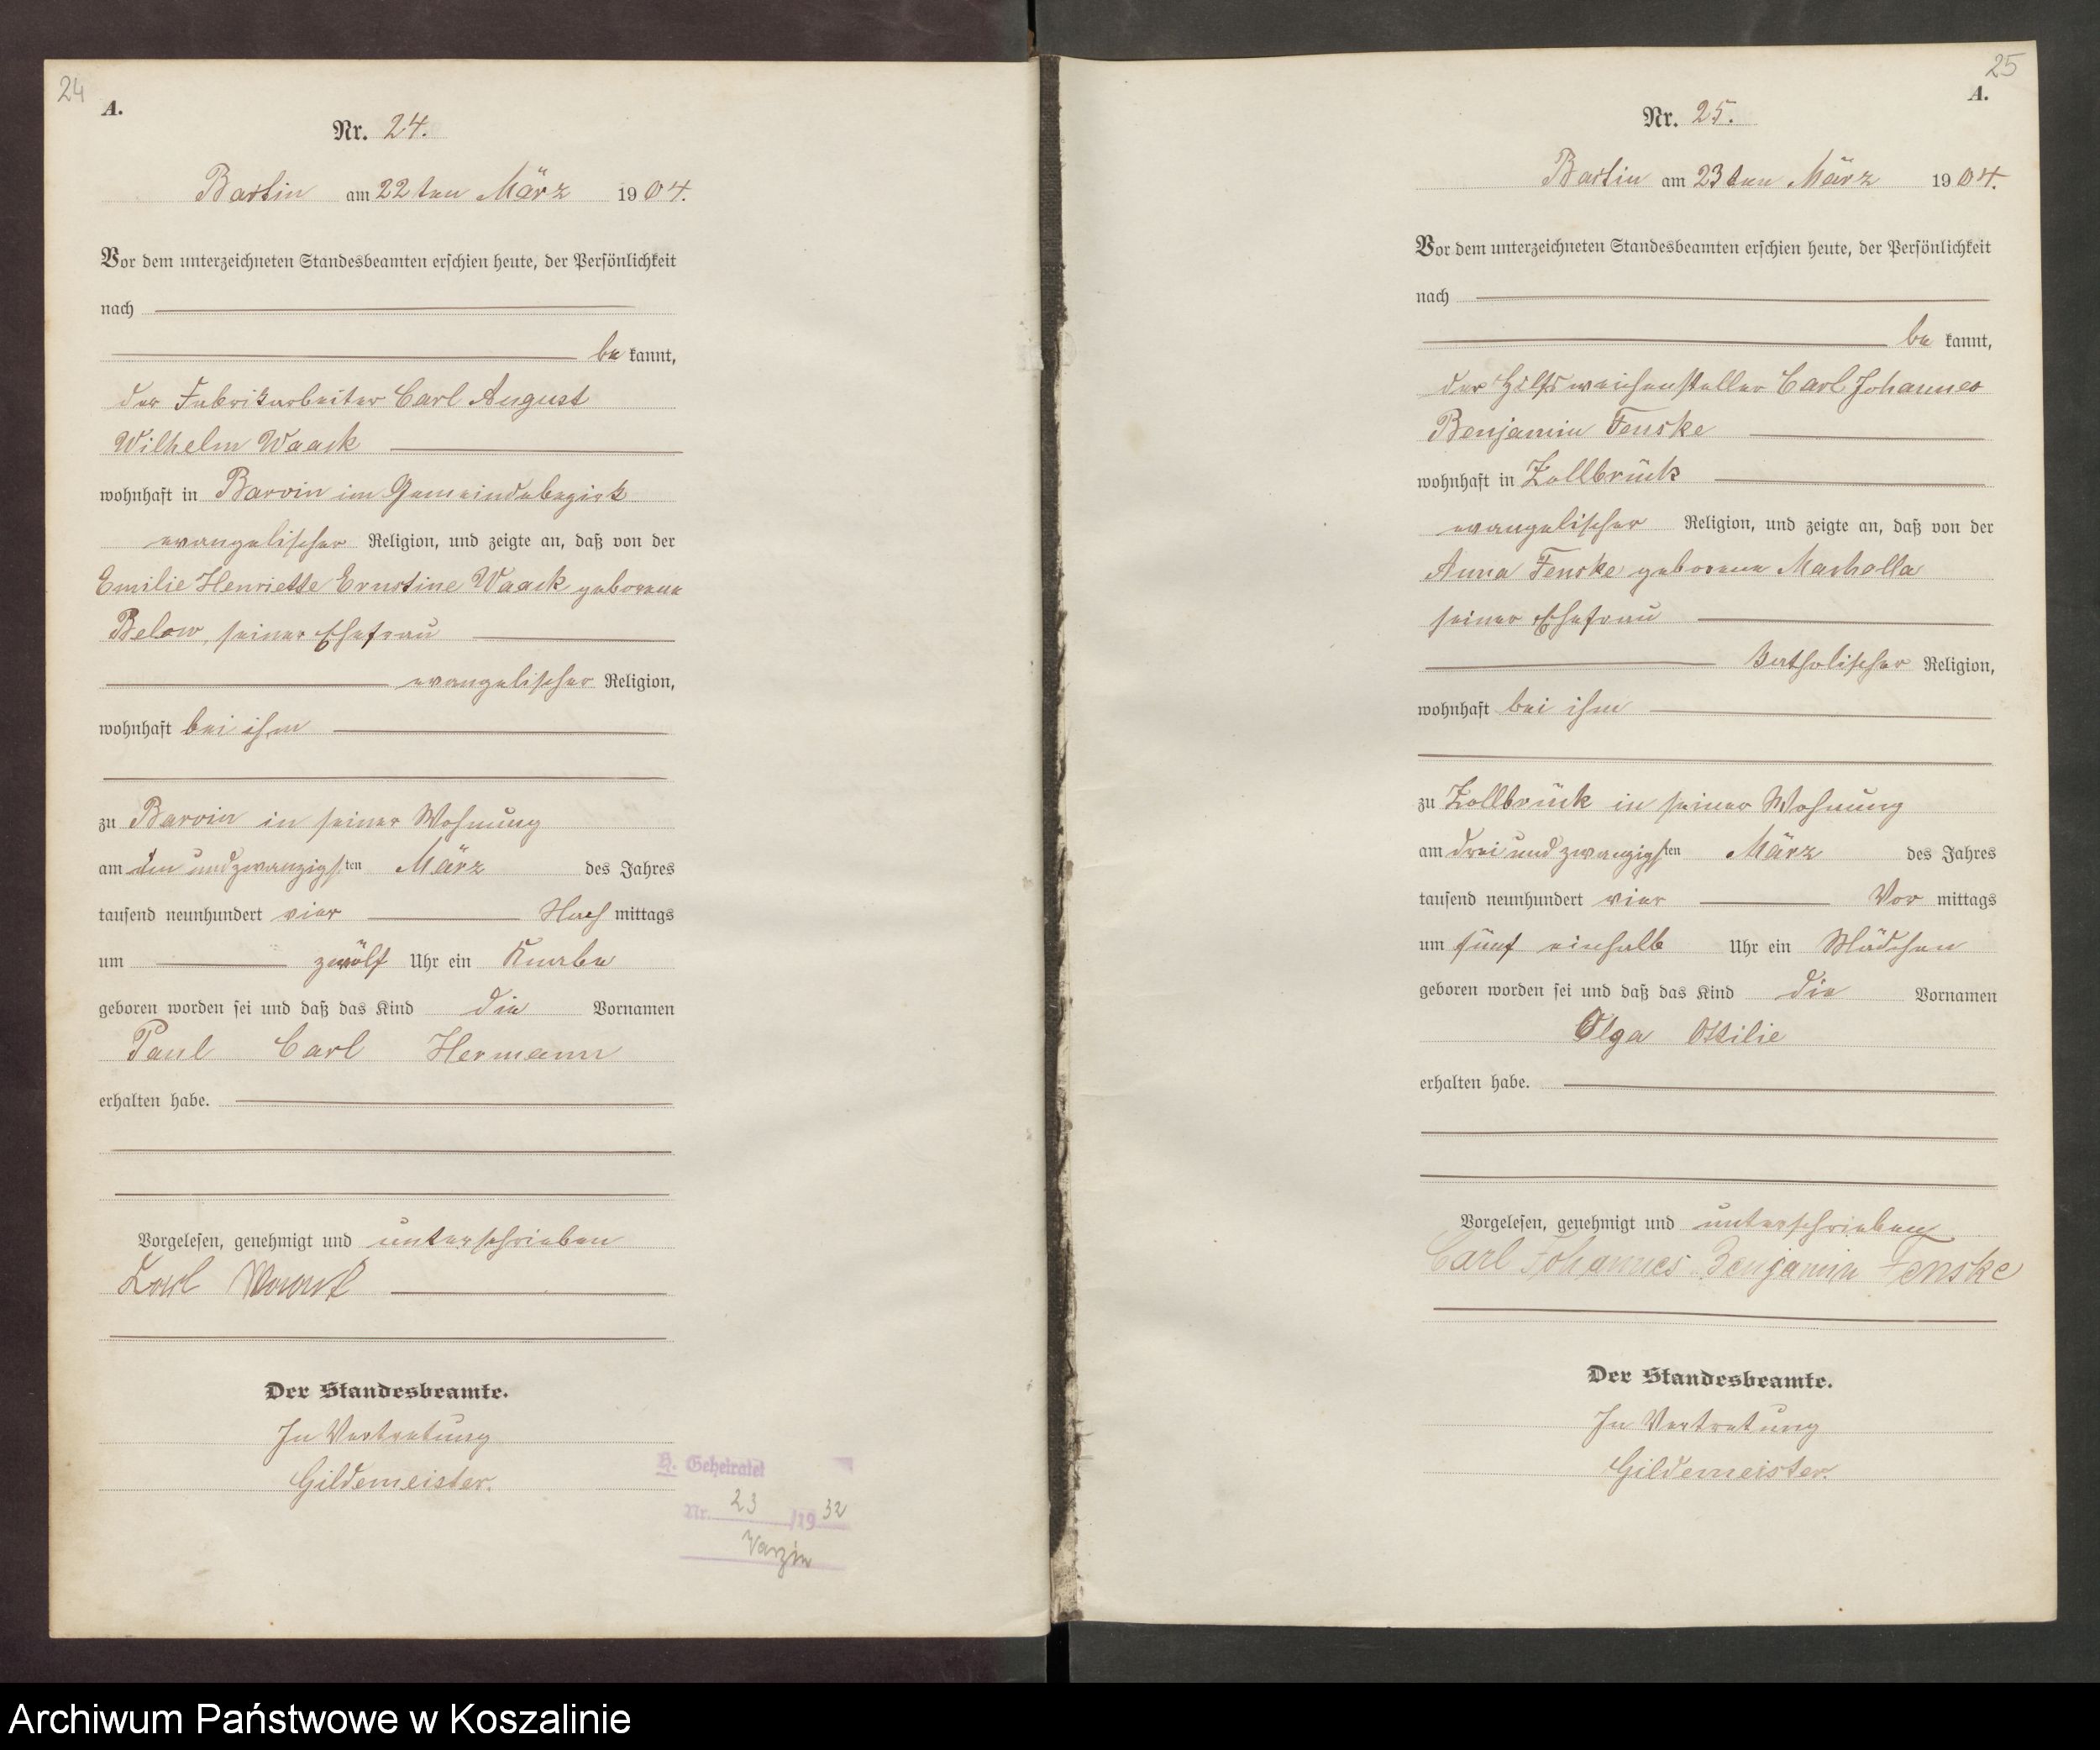 24
A.
Nr. 24.
Bartin am 22ten März 1904.
Vor dem unterzeichneten Standesbeamten erschien heute, der Persönlichkeit
nach
be kannt,
der Fabrikarbeiter Carl August
Wilhelm Waack
wohnhaft in Barvin im Gemeindebezirk
evangelischer Religion, und zeigte an, daß von der
Emilie Henriette Ernstine Waack geborene
Below, seiner Ehefrau
evangelischer Religion,
wohnhaft bei ihm
zu Barvin in seiner Wohnung
am und zwanzigsten März des Jahres
tausend neunhundert vier Nach mittags
um zwölf Uhr ein Knabe
geboren worden sei und daß das Kind die Vornamen
Paul Carl Hermann
erhalten habe.
Vorgelesen, genehmigt und unterschrieben
Karl Waack
Der Standesbeamte.
In Vertretung
Gildemeister.
H. Geheiratet
Nr. 23 /1932
Varzin
25
A.
Nr. 25.
Bartin am 23ten März 1904.
Vor dem unterzeichneten Standesbeamten erschien heute, der Persönlichkeit
nach
be kannt,
der Hilfsweichensteller Carl Johannes
Benjamin Fenske
wohnhaft in Zollbrück
evangelischer Religion, und zeigte an, daß von der
Anna Fenske geborene Marholla
seiner Ehefrau
katholischer Religion,
wohnhaft bei ihm
zu Zollbrück in seiner Wohnung
am drei und zwanzigsten März des Jahres
tausend neunhundert vier Vor mittags
um fünf einhalb Uhr ein Mädchen
geboren worden sei und daß das Kind die Vornamen
Olga Ottilie
erhalten habe.
Vorgelesen, genehmigt und unterschrieben
Carl Johannes Benjamin Fenske
Der Standesbeamte.
In Vertretung
Gildemeister.
Archiwum Państwowe w Koszalinie